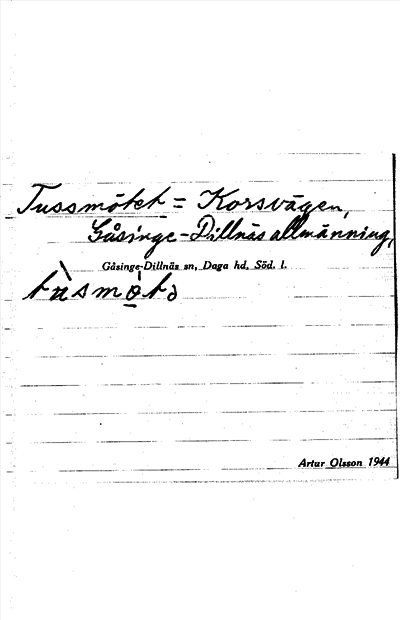 Tussmötet = Korsvägen,
Gåsinge-Dillnäs allmänning,
Gåsinge-Dillnäs sn, Daga hd, Söd. l.
Artur Olsson 1944